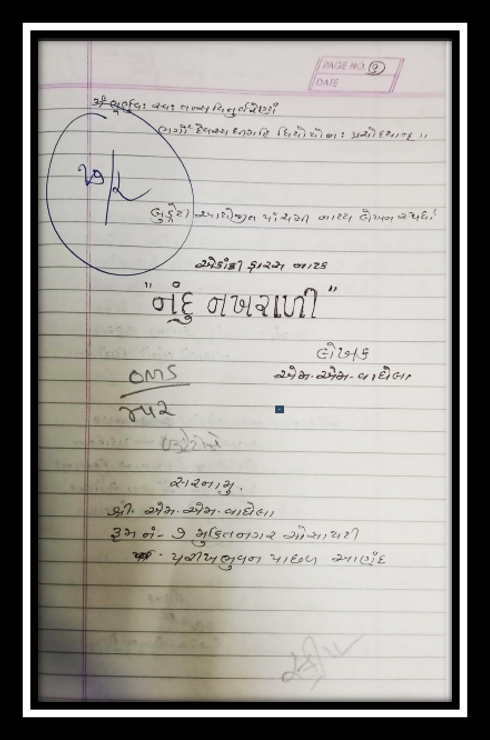 PAGE NO. ૧
DATE
ૐ ભૂર્ભુવઃ સ્વઃ તત્સ વિતુર્વરેણ્યં
ભર્ગો દેવસ્ય ધીમહિ ધિયો યોનઃ પ્રચોદયાત્ ॥
આયોજીત પાંચમી નાટ્ય લેખન સ્પર્ધા
એકાંકી ફારસ નાટક
"નંદુ નખરાળી"
લેખક
એમ. એમ. વાઘેલા
OMS
સરનામુ.
શ્રી. એમ. એમ. વાઘેલા
રૂમ નં- ૭ મુક્તિનગર સોસાયટી
પરીખભુવન પાછળ આણંદ